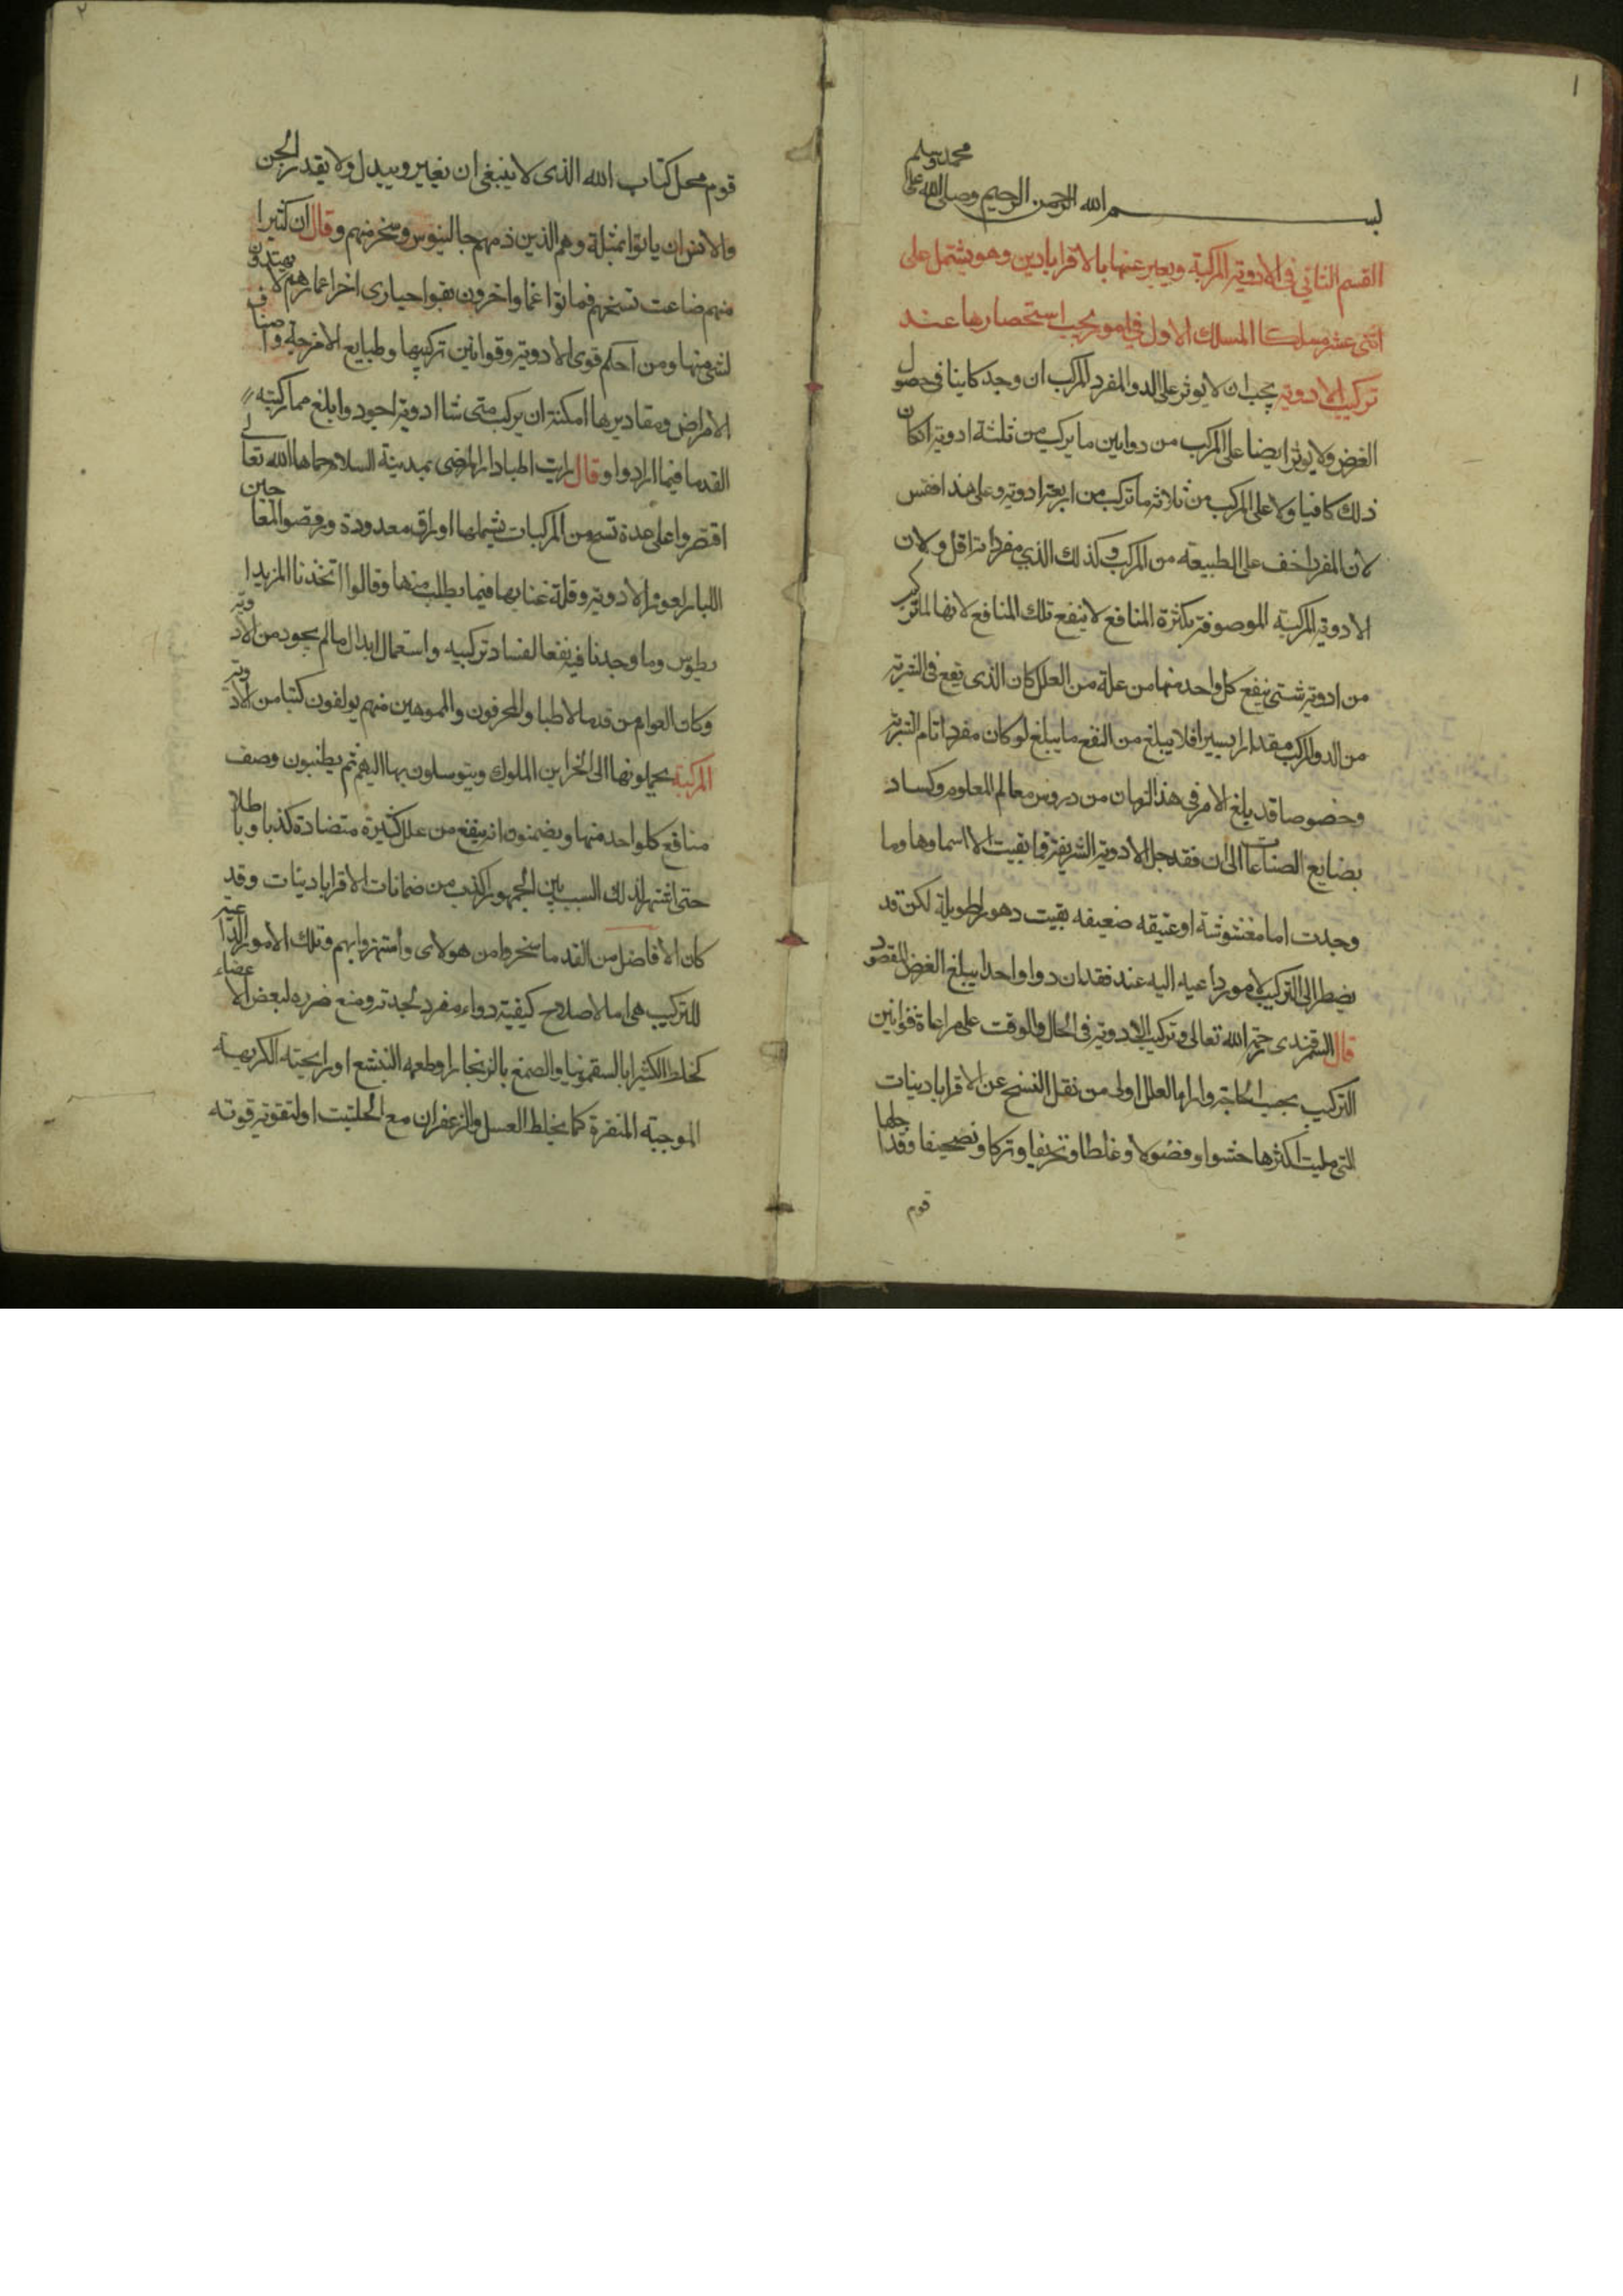 ١
بسم الله الرحمن الرحيم وصلى الله على
محمد وسلم
القسم الثاني في الادوية المركبة ويعبر عنها بالاقرابادين وهو يشتمل على
اثنى عشر مسلكا المسلك الاول في امور يجب استحضارها عند
تركيب الادوية يجب ان لا يوثر على الدوا المفرد المركب ان وجد كافيا في حصول
الغرض ولا يوثر ايضا على المركب من دوايين ما يركب من ثلثة ادوية اذا كان
ذلك كافيا ولا على المركب من ثلاثة ما تركب من اربعة ادوية وعلى هذا فقس
لان المفرد اخف على الطبيعة من المركب وكذلك الذي مفرداته اقل ولان
الادوية المركبة الموصوفة بكثرة المنافع لا ينفع تلك المنافع لانها لما تركب
من ادوية شتى ينفع كل واحد منها من علة من العلل كان الذى يقع في الشربة
من الدوا المركب مقدارا يسيرا فلا يبلغ من النفع ما يبلغ لو كان مفردا تام الشربة
وخصوصا قد بلغ الامر في هذا الزمان من دروس معالم العلوم وكساد
بضايع الصناعات الى ان فقد جل الادوية الشريفة فما بقيت الا اسماوها وما
وجدت اما مغشوشة او عتيقه ضعيفه بقيت دهورا طويلة لكن قد
يضطر الى التركيب لامور داعيه اليه عند فقدان دوا واحد يبلغ الغرض المقصود
قال السمرقندى رحمه الله تعالى وتركيب الادوية في الحال والوقت على مراعاة قوانين
التركيب بحسب الحاجة وازا العلل اولى من نقل النسخ عن الاقرابادينات
التي مليت اكثرها حشوا وفضولا وغلطا وتحريفا وتركا وتصحيفا وقد احلها
قوم
٢
قوم محل كتاب الله الذى لا ينبغى ان يغير ويبدل ولا يقدر الجن
والانس ان ياتوا بمثله وهم الذين ذمهم جالينوس وسخر منهم وقال ان كثيرا
منهم ضاعت نسخهم فماتوا غما واخرون بقوا حيارى اخر اعمارهم لا يهتدون
لشي منها ومن احكم قوى الادوية وقوانين تركيبها وطبايع الامزجة واصناف
الامراض ومقاديرها امكنه ان يركب متى شا ادوية اجود وابلغ مما ركبته
القدما فيما ارادوا وقال رايت اطبا دار المرضى بمدينة السلام حماها الله تعالى
اقتصروا على عدة نسخ من المركبات يشملها اوراق معدودة ورفضوا المعاجين
الكبار لعوز الادوية وقلة غنايها فيما يطلب منها وقالوا اتخذنا المزيدا
ريطوس وما وجدنا فيه نفعا لفساد تركيبه واستعمال ابدال ما لم يجود من الادوية
وكان العوام من قدما الاطبا والمحرفون والمموهين منهم يولفون كتبا من الادوية
المركبة يحملونها الى خزاين الملوك ويتوسلون بها اليهم ثم يطنبون وصف
منافع كل واحد منها ويضمنون انه ينفع من علل كثيرة متضادة كذبا وباطلا
حتى اشتهر لذلك السبب بين الجمهور اكذب من ضمانات الاقرابادينات وقد
كان الافاضل من القدما سخروا من هولاى واستهزوا بهم وتلك الامور الداعية
للتركيب هى اما لاصلاح كيفية دواء مفرد لحدته ومنع ضرره لبعض الاعضاء
كخلط الكثيرا بالسقمونيا والصمغ بالزنجار او طعمه البشع او رايحته الكريهة
الموجبة المنفرة كما يخلط العسل والزعفران مع الحلتيت او لتقوية قوته